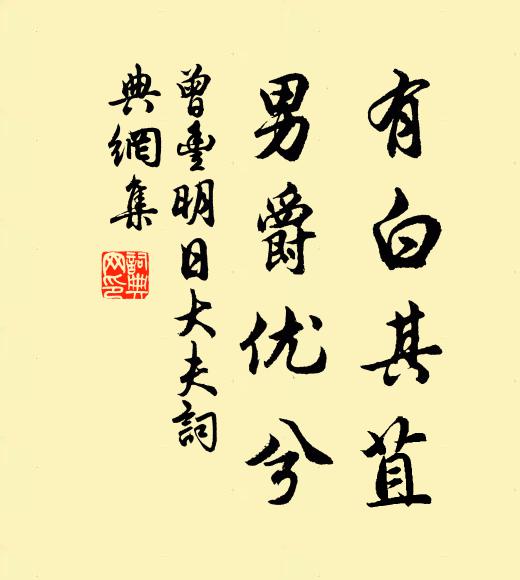 有白其苴
男爵优兮
曾丰明日大夫詞
典網集
詞典网印